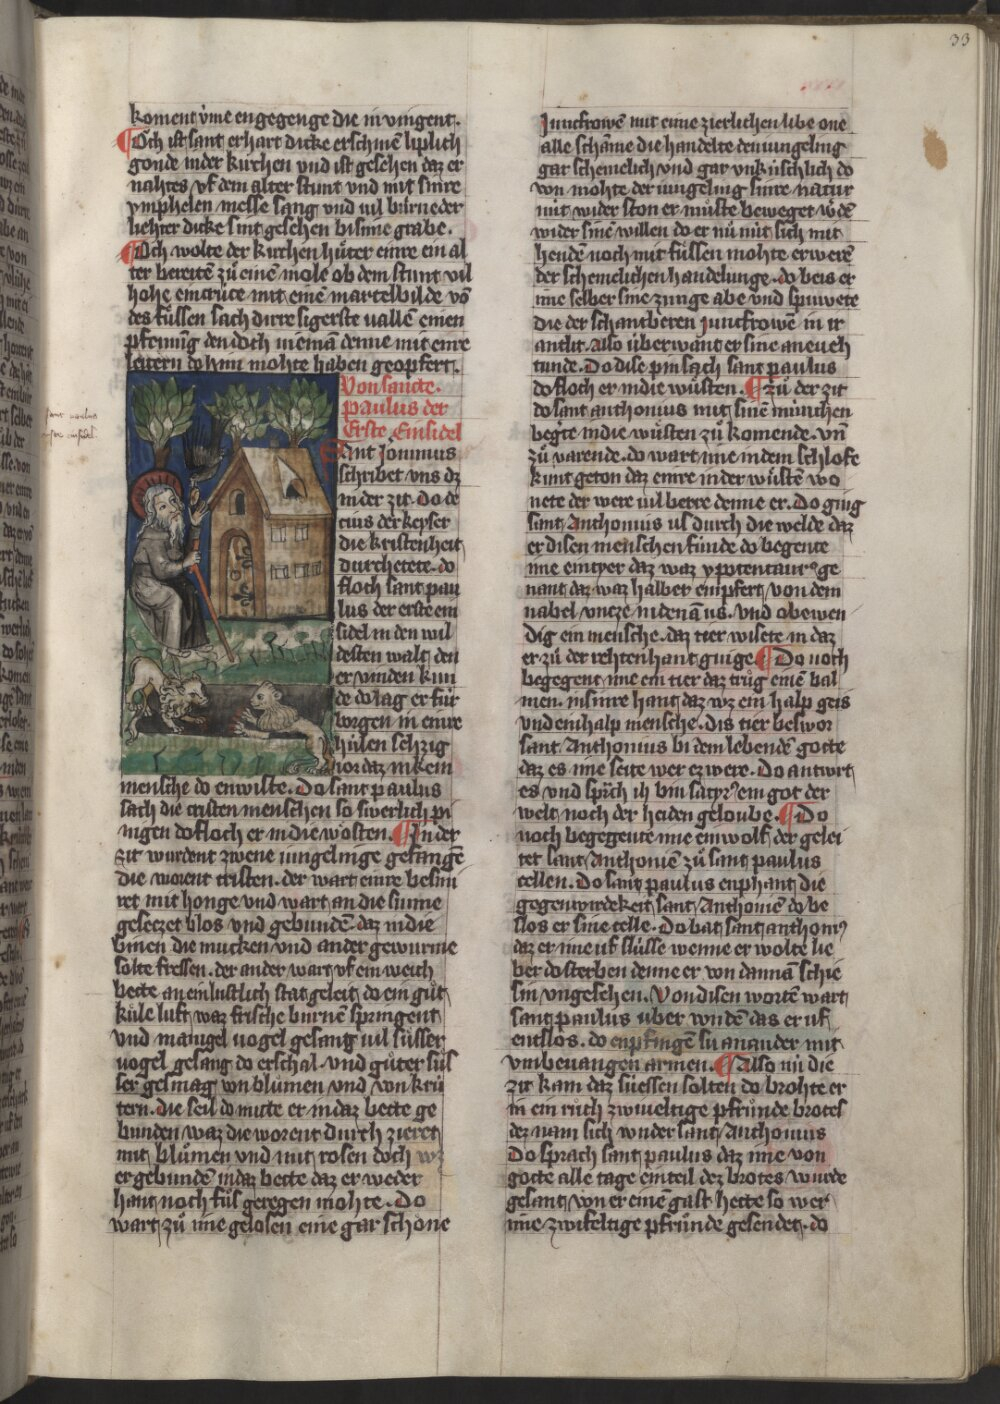 33
koment ime engegenge die in vingent.
Och ist sant erhart dicke erschinē liplich
gonde in der kirchen vnd ist gesehen daz er
nahtes vf dem alter stunt vnd mit sinre
ymphelen messe sang vnd vil burneder
liehter dicke sint gesehen bi sinne grabe.
Och wolte der kirchen hůter einre ein al
ter bereitē zů einē mole ob dem stunt vil
hohe ein crüce mit einē martelbilde vō
des fůssen sach dirre sigerste vallē einen
pfenning den doch niemā denne mit einre
leitern do hin mohte haben geopfert.
Von sancte
paulus der
Erste Einsidel
sant paulus
Sant Jonimus
schribet vns dz
in der zit. do de
cius der keyser
die kristenheit
durchetete. do
floch sant pau
lus der erste ein
sidel in den wil
desten walt den
er vinden kun
de do lag er für
borgen in einre
hülen sehzig
ior daz nikein
mensche do enwiste. Do sant paulus
sach die cristen menschen so swerlich pi
nigen do floch er in die wosten. In der
zit wurdent zwene iungelinge gefangē
die worent cristen. der wart einre besmi
ret mit honge vnd wart an die sunne
geseczet blos vnd gebundē. daz in die
binen die mucken vnd ander gewurme
solte fressen. der ander wart vf ein weich
bette an ein lustlich stat geleit do ein gůt
kůle luft waz frische burnē springent
vnd manigel uogel gesang vil süsser
uogel gesang do erschal. vnd gůter süs
ser gesmag von blůmen vnd von krü
tern. die seil do mitte er in daz bette ge
bunden waz die worent durch zieret
mit blůmen vnd mit rosen doch wz
er gebundē in daz bette daz er weder
hant noch fůs geregen mohte. Do
wart zů ime gelosen eine gar schöne
Juncfrowē mit eime zierlichen libe one
alle schāme die handelte den iungeling
gar schemelich vnd gar vnkůschlich do
von mohte der iungeling sinre natur
nüt wider ston er můste beweget wdē
wider sinē willen do er nů nüt sich mit
hendē noch mit füssen mohte erwerē
der schemelichen handelunge. do beis er
ime selber sine zunge abe vnd spuwete
die der schamberen iuncfrowē in ir
antlit. Also überwant er sine aneueh
tunge. Do dise pin sach sant paulus
do floch er in die wüsten. Zů der zit
do sant anthonius mit sinē münchen
begte in die wüsten zů komende. vn
zů varende. do wart ime in dem schlofe
kunt geton daz einre in der wüstē wo
nete der were vil berre denne er. Do ging
sant Anthonius us durch die welde daz
er disen menschen fünde do begente
ime ein tyer daz waz ypotentaurus ge
nant daz waz halber ein pfert von dem
nabel vncze niden ā us. vnd obewen
dig ein mensche. daz tier wisete in daz
er zů der rehten hant ginge. Do noch
begegent ime ein tier daz trůg einē bal
men. in sinre hant daz wz ein halp geis
vnd ein halp mensche. dis tier beswor
sant Anthonius bi dem lebendē gotte
daz es ime seite wer ez were. Do antwrt
es vnd sprach ih bin satyrus ein got der
welt noch der heiden geloube. Do
noch begegente ime ein wolf der gelei
tet sant Anthoniē zů sant paulus
cellen. Do sant paulus enphant die
gegenwirdekeit sant Anthoniē do be
slos er sine celle. Do bat sant anthonius
daz er ime uf slüsse wenne er wolte lie
ber do sterben denne er von dannā schie
sin vngesehen. Von disen wortē wart
sant paulus über wndē das er uf
entslos. do enpfingē su an ander mit
vmbeuangen armen. Also nů die
zit kam daz sü essen solten do brohte er
in ein rüch zwiueltige pfrůnde brotes
dez nam sich wnder sant Anthonius
Do sprach sant paulus daz ime von
gotte alle tage ein teil dez brotes wurde
gesant von er einē gast hette so wer
ime zwifeltige pfrůnde gesendet. do